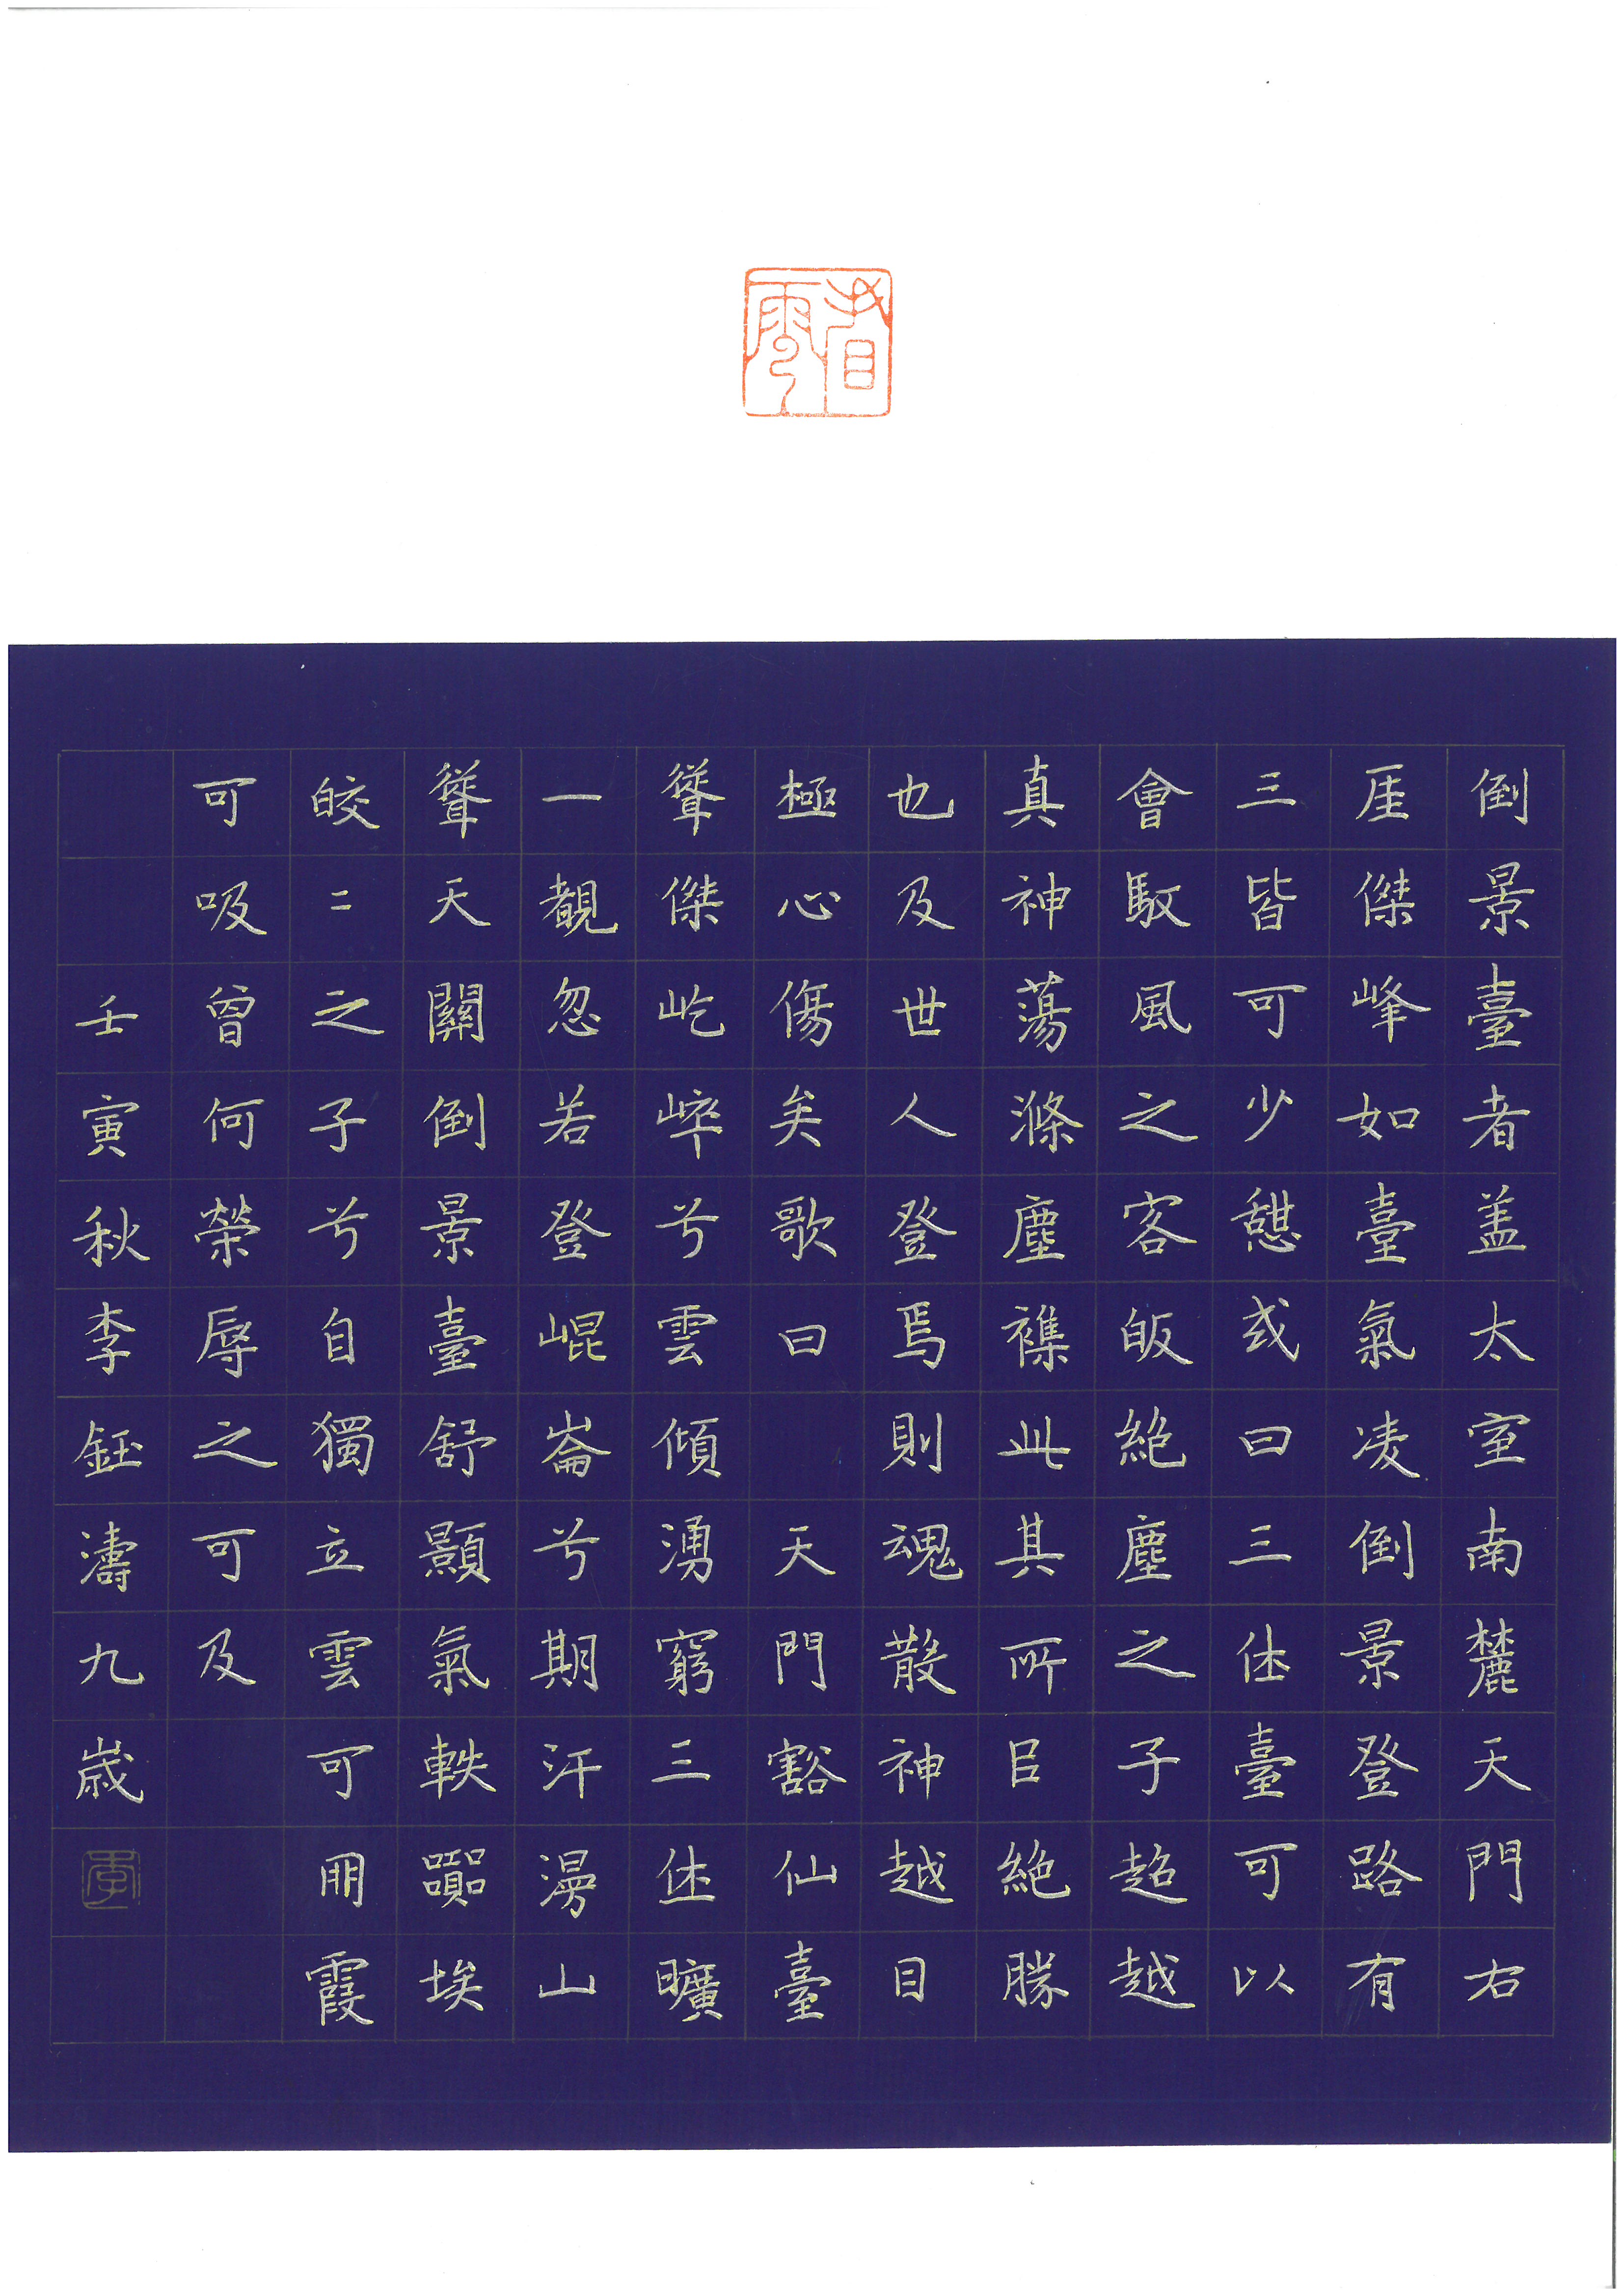 倒景臺者盖太室南麓天門右
厓傑峰如臺氣凌倒景登路有
三皆可少憇或曰三休臺可以
會馭風之客皈絶塵之子超越
真神蕩滌塵襍此其所㠯絶勝
也及世人登焉則魂散神越目
極心傷矣歌曰 天門豁仙臺
聳傑屹崒兮雲傾湧窮三休曠
一覩忽若登崐崙兮期汗漫山
聳天關倒景臺舒顥氣軼囂埃
皎〻之子兮自獨立雲可朋霞
可吸曾何榮辱之可及
壬寅秋李鈺濤九歲